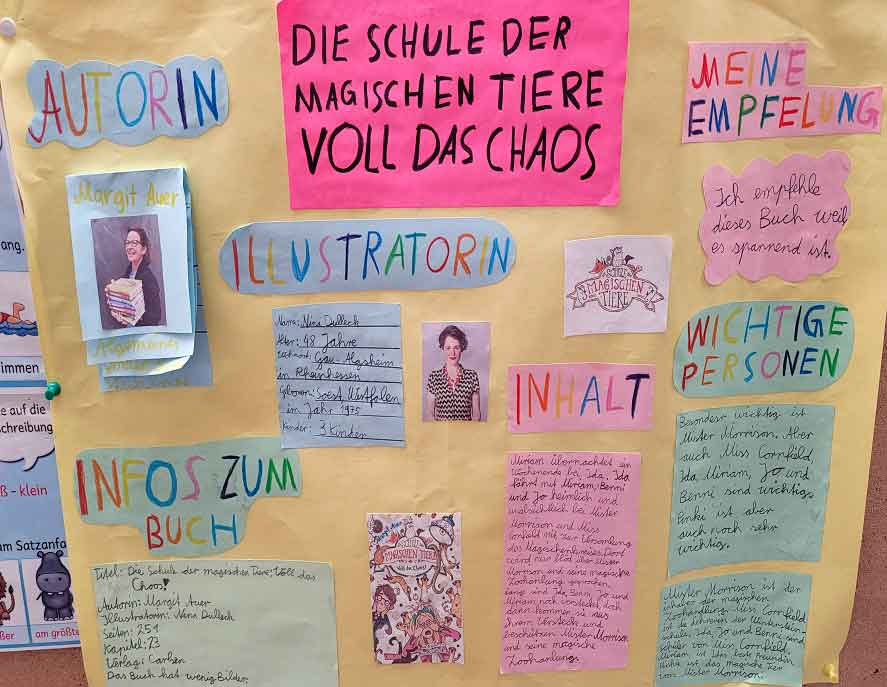 DIE SCHULE DER
MAGISCHEN TIERE
VOLL DAS CHAOS
AUTORIN
Margit Auer
ILLUSTRATORIN
Name: Nina Dulleck
Alter: 48 Jahre
Gau-Algesheim
in Rheinhessen
Geboren: Soest Westfalen
im Jahr 1975
Kinder: 3 Kinder
INFOS ZUM
BUCH
Titel: Die Schule der magischen Tiere; Voll das
Chaos!
Autorin: Margit Auer
Illustratorin: Nina Dulleck
Seiten: 251
Kapitel: 23
Verlag: Carlsen
Das Buch hat wenig Bilder.
SCHULE
DER
MAGISCHEN
TIERE
INHALT
Miriam übernachtet ein
Wochenende bei Ida. Ida
fährt mit Miriam, Benni
und Jo heimlich und
zu Mister
Morrison und Miss
Cornfield mit zur Versamlung
des Magischenkreises. Dort
wird nur über Mister
Morrison und seine magische
Zoohandlung gesprochen
lange sind Ida, Benni, Jo und
Miriam noch versteckt doch
dann kommen sie aus
ihrem Versteck und
beschützen Mister Morrison
und seine magische
Zoohandlung.
MAGISCHEN TIERE
Voll das Chaos!
MEINE
EMPFELUNG
Ich empfehle
dieses Buch weil
es spannend ist.
WICHTIGE
PERSONEN
Besonders wichtig ist
Mister Morrison. Aber
auch Miss Cornfield
Ida, Miriam, Jo und
Benni sind wichtig.
Pinki ist aber
auch noch sehr
wichtig.
Mister Morrison ist der
inhaber der magischen
Zoohandlung. Miss Cornfield
ist die lehrerin der Wintersteinschule,
Ida, Jo und Benni sind
schüler von Miss Cornfield.
Miriam ist Idas beste Freundin
Pinki ist das magische Tier
von Mister Morrison.
ang.
immen
e auf die
chreibung
ß - klein
am Satzanfa
am größte